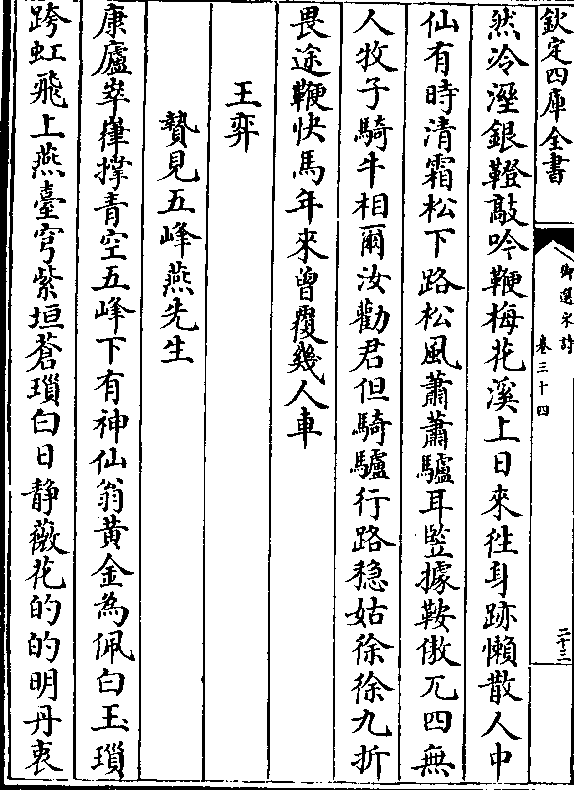 欽定四庫全書
御選宋詩
卷三十四
二十三
然冷溼銀鐙敲吟鞭梅花溪上日來徃身跡懶散人中
仙有時清霜松下路松風蕭蕭驢耳竪據鞍傲兀四無
人牧子騎牛相爾汝勸君但騎驢行路穏姑徐徐九折
畏途鞭快馬年來曽覆幾人車
王弈
贄見五峰燕先生
康廬崒嵂撑青空五峰下有神仙翁黄金為佩白玉瑣
跨虹飛上燕臺穹紫垣蒼瑣白日静薇花的的明丹衷